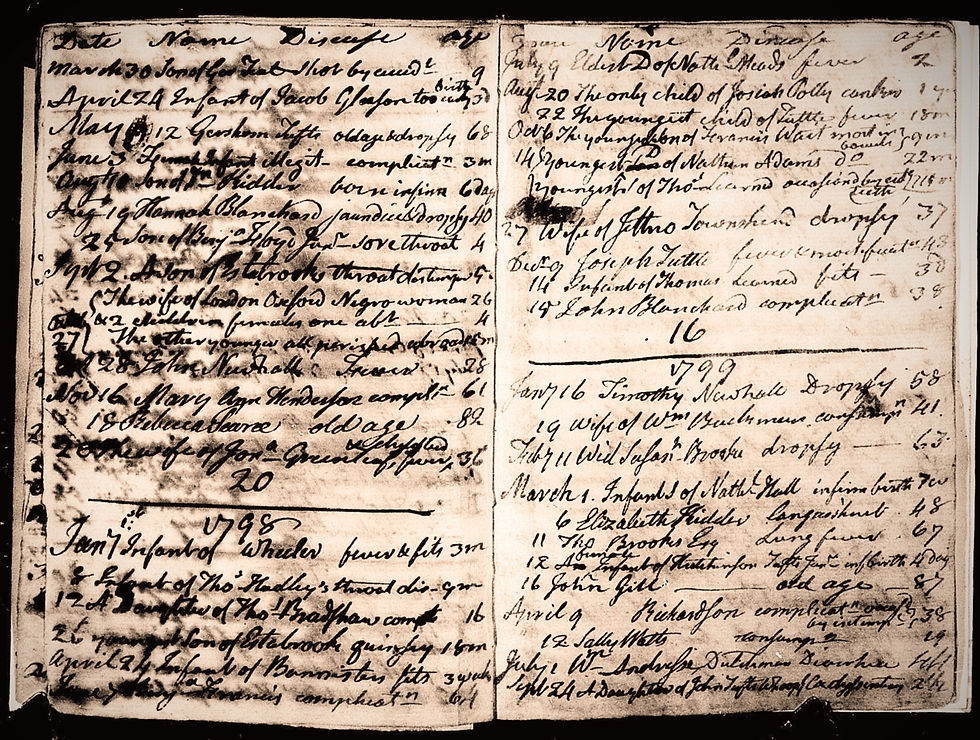 Date Name Disease age
March 30 Son of Geo Teal Shot by accidt 9
April 24 Infant of Jacob Gleason too early birth 3d
May 12 Gershom Tufts old age & dropsy 68
June 3 Infant illegit- complicatn 3m
Augt 10 Son of Kidder born infirm 6 day
Augt 19 Hannah Blanchard jaundice & dropsy 40
25 Son of Benja Floyd Junr sore throat 4
Sept 2. A Son of Estabrooks throat distempr 5
The wife of London Oxford Negro woman 26
& 2 children females one abt 4
27 The other younger all perished abroad
28 John Newhall Fever 28
Novr 16 Mary Ann Henderson complictn 61
18 Rebecca Pearce old age 82
The wife of Jona Green fever 36
20
1798
Jany 1st Infant of Wheeler fever & fits 3m
8 Infant of Thos Hadley's throat dis- 9m
12 A Daughter of Thos Bradshaw compt 16
26 youngest Son of Estabrooks quinsey 18m
April 24 Infant of Bannisters fits 3 weeks
June Francis complicatn 64
Name Disease age
July 9 Eldest D of Nathl Meads fever 2
Augt 20 The only child of Josiah Polly canker
22 The youngest child of Tuttle fever 18m
Octr 6 The youngest son of Francis Wait mortn in bowels 9m
14 youngest of Nathan Adams do 22m
youngest of Thos Learned occasiond by cutg teeth
27 Wife of Jethro Townshend dropsy 37
Decr 9 Joseph Tuttle fever & mortificatn 48
14 Infant of Thomas Learned fits - 3d
18 John Blanchard complicatn 38
16
1799
Jany 16 Timothy Newhall Dropsy 58
19 Wife of Wm Buckman consumpn 41
Feby 11 Wid Susanh Brooks dropsy 63
March 1. Infant of Nathl Hall infirm birth
6 Elizabeth Kidder 48
11 Tho Brooks Esq Lung fever 67
12 Infant of Hutchinson Tufts Junr inf birth 4 day
16 John Gill old age 87
April 9 Richardson complicatn by intemp 38
12 Sally Watts consump 19
July 1 Wm Dutchman Diarrhea
Sept 24 A Daughter of John Tufts